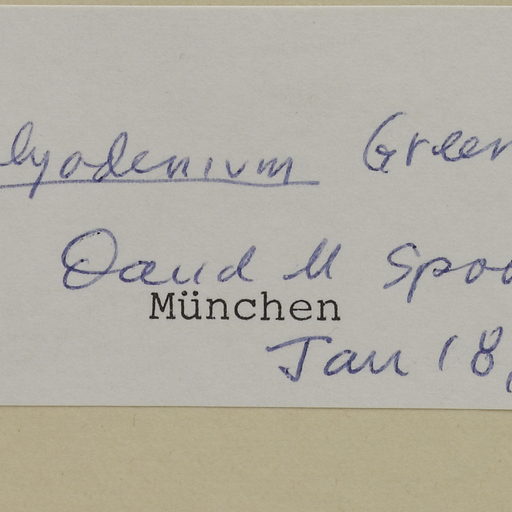 lyodenium Green
David M Spoo
München
Jan 18,